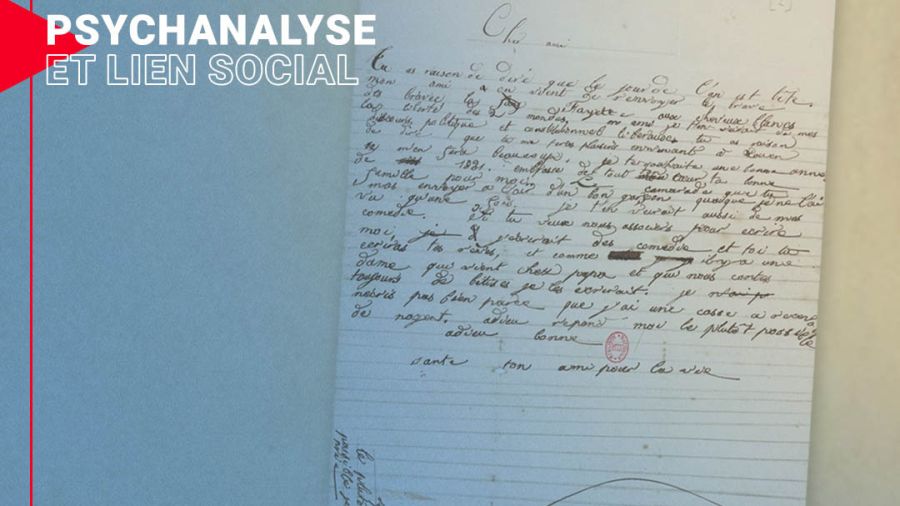 PSYCHANALYSE
ET LIEN SOCIAL
Cher ami
Tu as raison de dire que le jour de l'an est bête.
mon ami on vient de renvoyer le brave
des braves la Fayette aux cheveux blancs
la liberté des 2 mondes. ami je t'en veirait de mes
discours politique et constitutionnel libéraux tu as raison
de dire que tu me feras plaisirs en venant à Rouen
sa m'en fera beaucoup. je te souhaite une bonne anné
de 1831. embrasse de tout ton cœur ta bonne
famille pour moin. Le camarade que tu
mas envoyer a l'air d'un bon garçon quoique je ne l'ai
vu qu'une fois. je t'en veirait aussi de mes
comedie. si tu veux nous associers pour ecrire
moi, j'ecrirait des comédie et toi tu
ecriras tes rèves, et comme il y a une
dame qui vient chez papa et qui nous contes
toujours de bêtises je les ecrirait. je
necris pas bien parce que j'ai une casse à recevoir
de nogent. adieu répond moi le plutôt possible
adieu bonne
santé ton ami pour la vie
le plutôt
possible je